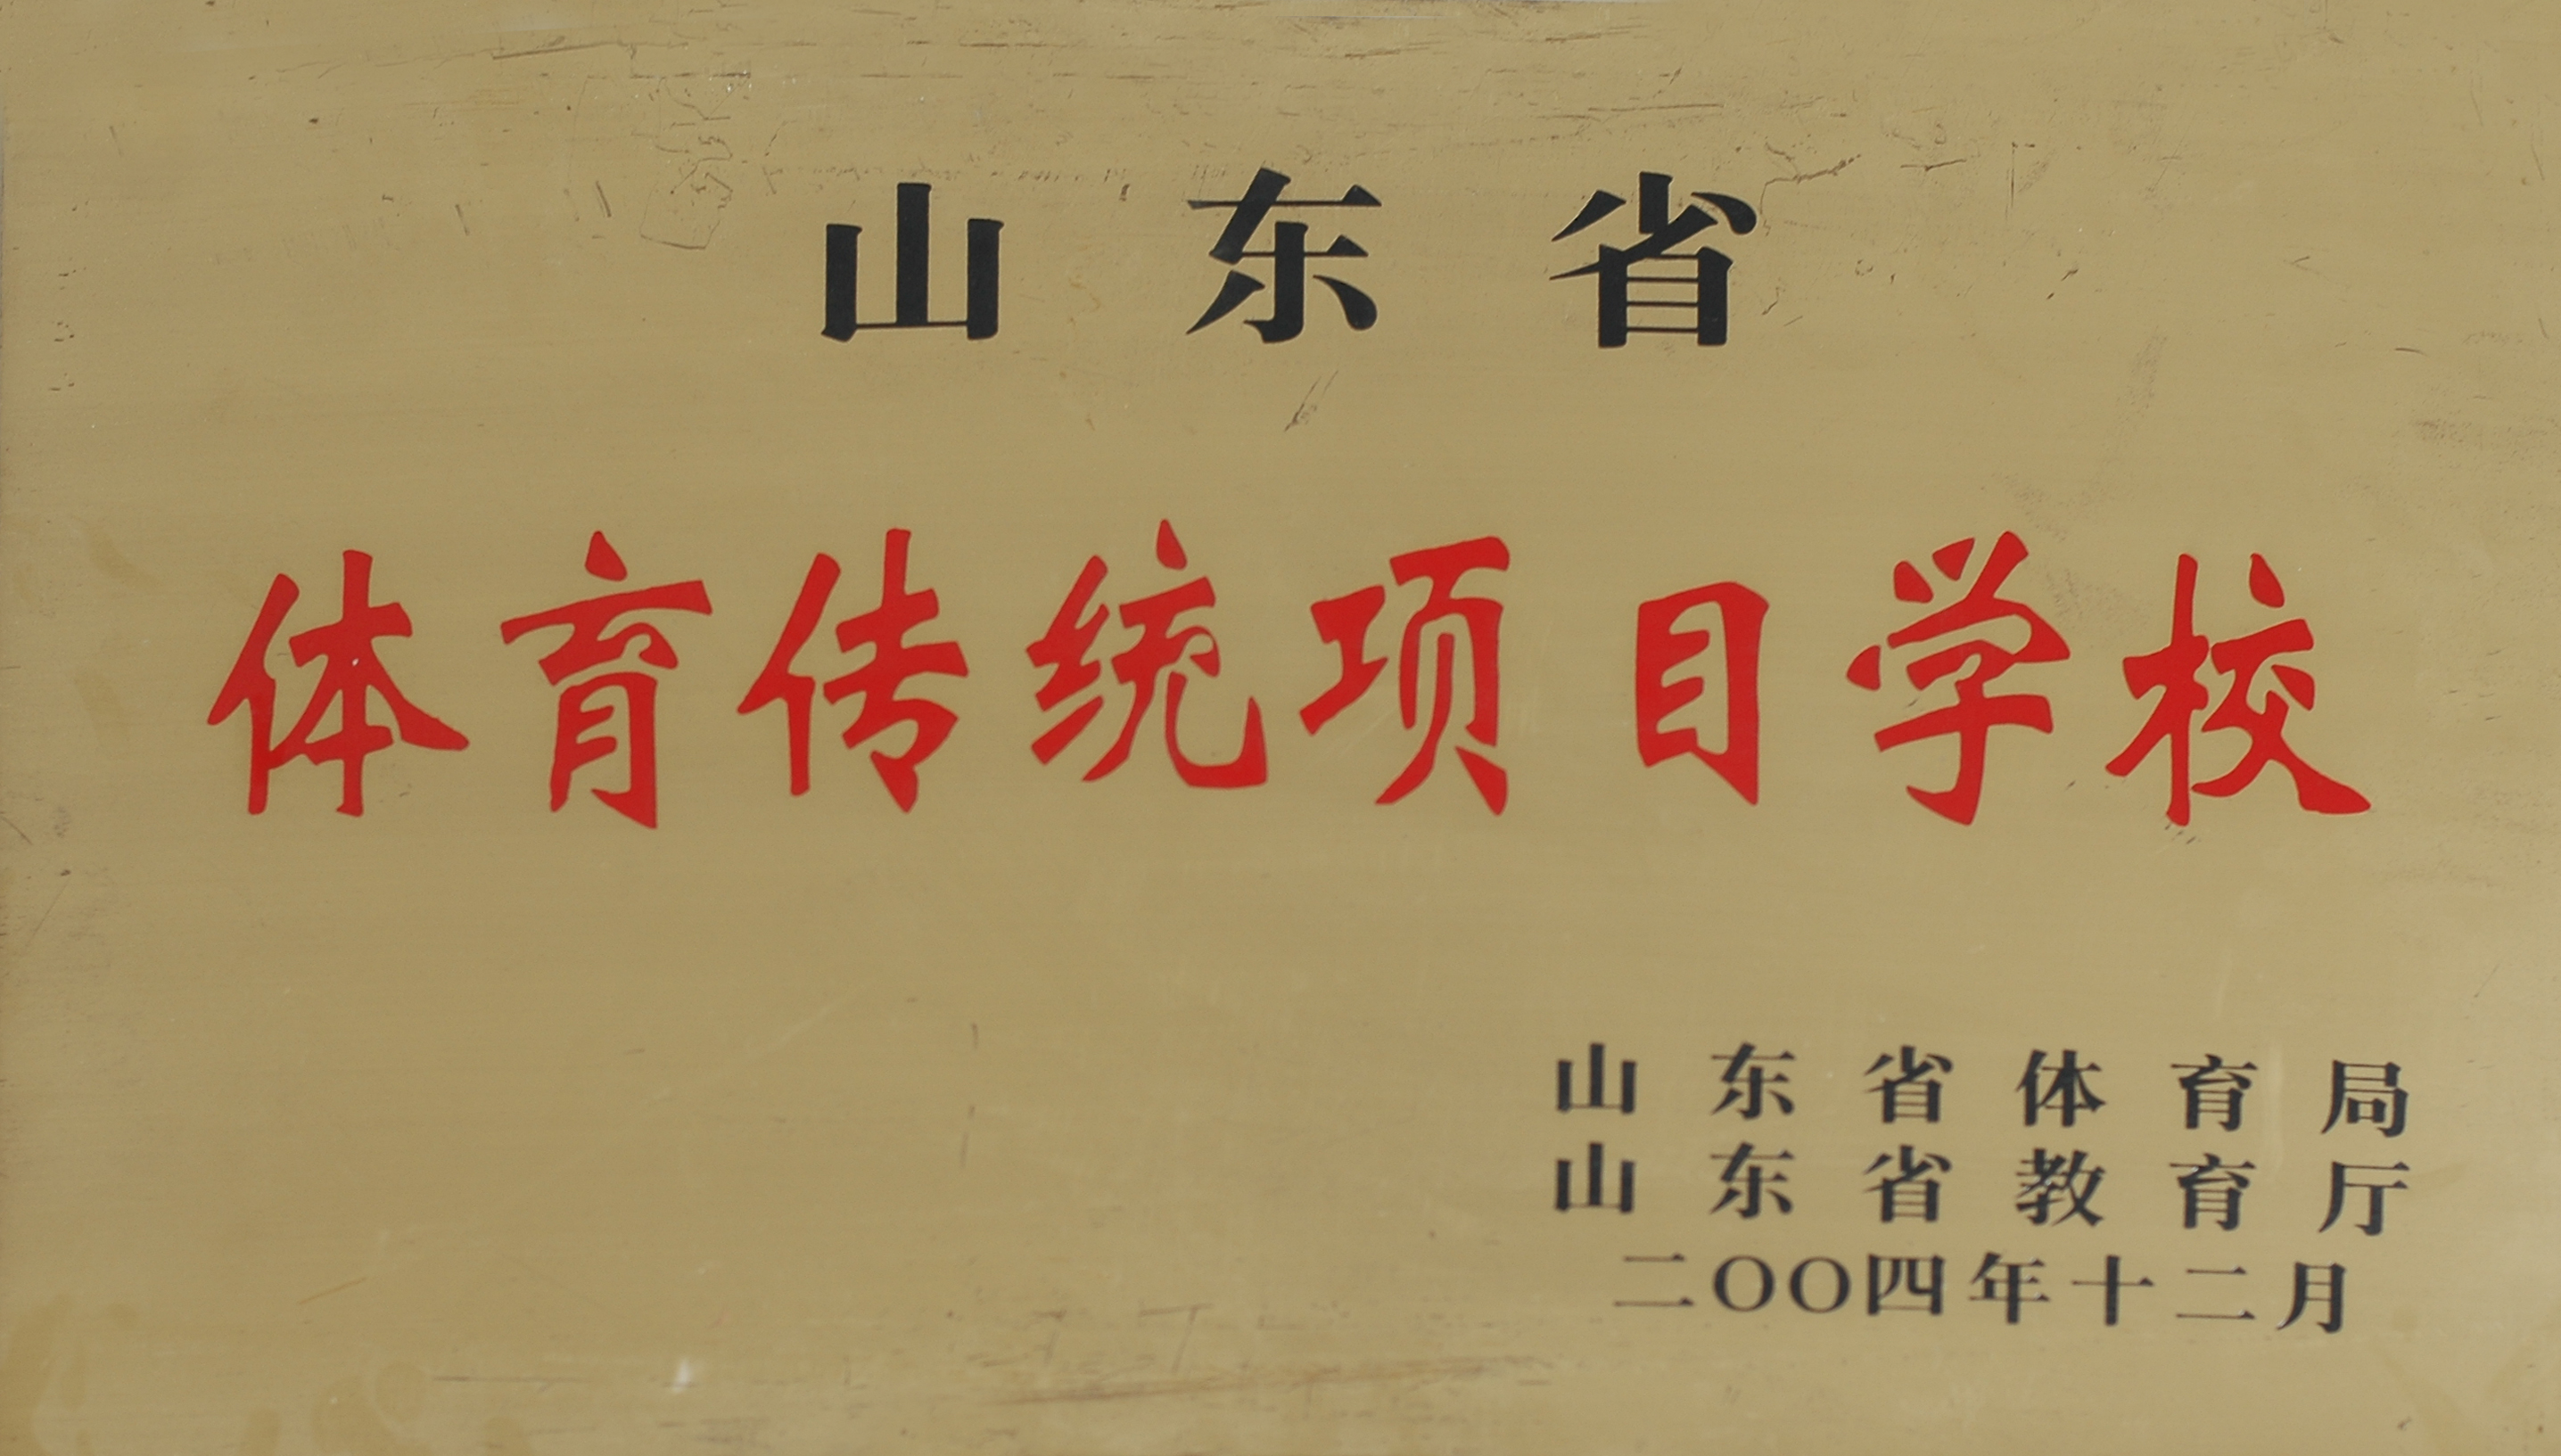 山东省
体育传统项目学校
山东省体育局
山东省教育厅
二〇〇四年十二月